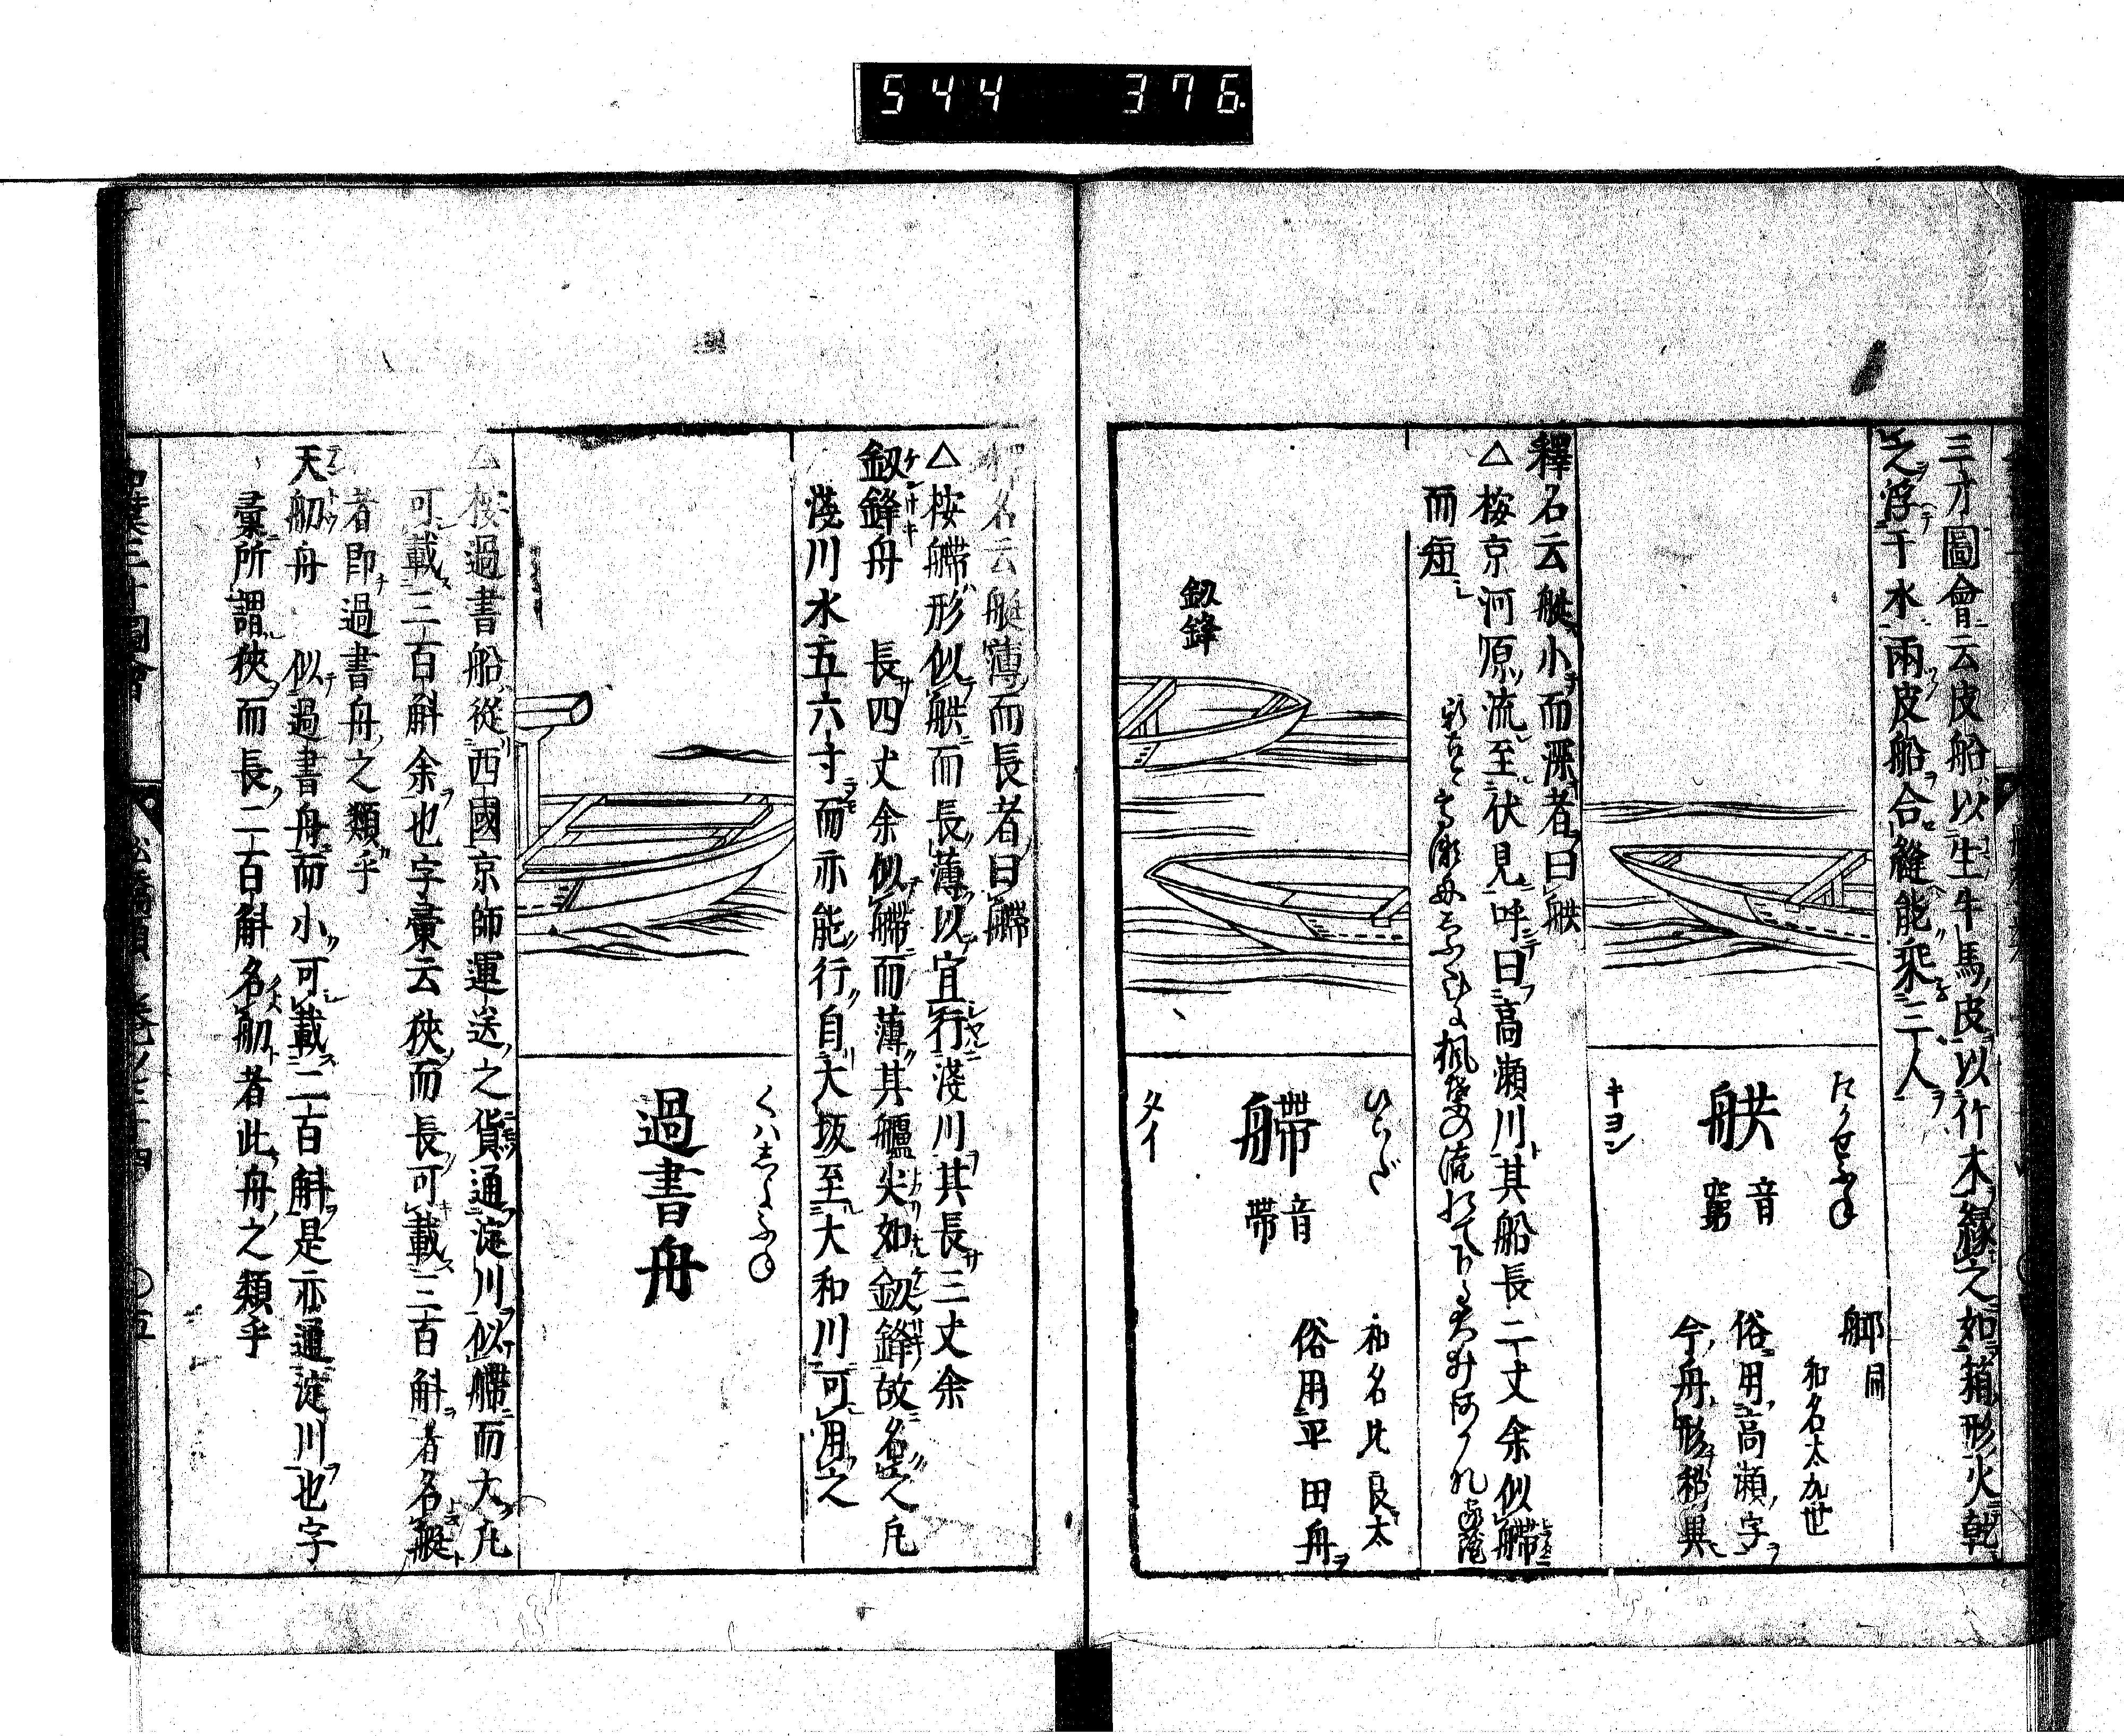 544 376
三才圖會云皮船以生牛馬皮以竹木緣之如箱形火乾
之浮于水兩皮船合縫能乘三人
たかせふね
舼
音窮
キヨン
䑨同
和名太加世
俗用高瀬字
今舟形稍異
釋名云艇小而深者曰舼
△桉京河原流至伏見呼曰高瀬川其船長二丈余似艜
而短
釼鋒
ひらだ
艜
音帶
タイ
和名比良太
俗用平田舟
釋名云艇薄而長者曰艜
△桉艜形似舼而長薄以宜行淺川其長三丈余
釼鋒舟 長四丈余似艜而薄其艫尖如釼鋒故名之凡
淺川水五六寸而亦能行自大坂至大和川可用之
くはしよふね
過書舟
△桉過書船從西國京師運送之貨通淀川似艜而大凡
可載三百斛余也字彙云狹而長可載三百斛者名艇
者即過書舟之類乎
天舠舟 似過書舟而小可載二百斛是亦通淀川也字
彙所謂狹而長二百斛名舠者此舟之類乎